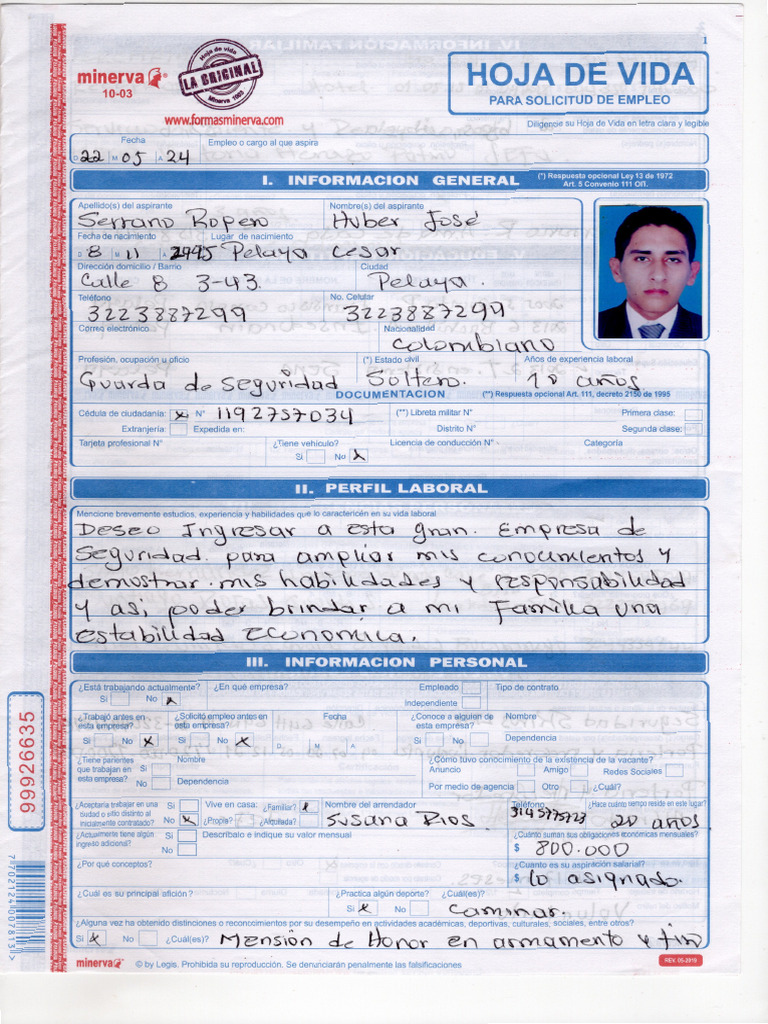 1
minerva
10-03
Hoja de vida
LA ORIGINAL
Minerva 1003
www.formasminerva.com
HOJA DE VIDA
PARA SOLICITUD DE EMPLEO
Diligencie su Hoja de Vida en letra clara y legible
Fecha Empleo o cargo al que aspira
D 22 M 05 A 24
I. INFORMACION GENERAL (*) Respuesta opcional Ley 13 de 1972
Art. 5 Convenio 111 OIT.
Apellido(s) del aspirante Nombre(s) del aspirante
Serrano Ropero Huber José
Fecha de nacimiento Lugar de nacimiento
D 8 M 11 A Pelaya Cesar
Dirección domicilio / Barrio Ciudad
Calle 8 3-43. Pelaya.
Teléfono No. Celular
3223887299 3223887299
Correo electrónico Nacionalidad
Colombiano
Profesión, ocupación u oficio (*) Estado civil Años de experiencia laboral
Guarda de seguridad Soltero. 10 años
DOCUMENTACION (**) Respuesta opcional Art. 111, decreto 2150 de 1995
Cédula de ciudadanía: x N° 1192757034 (**) Libreta militar N° Primera clase:
Extranjería: Expedida en: Distrito N° Segunda clase:
Tarjeta profesional N° ¿Tiene vehículo? Licencia de conducción N° Categoría
Si No x
II. PERFIL LABORAL
Mencione brevemente estudios, experiencia y habilidades que lo caractericen en su vida laboral
Deseo Ingresar a esta gran. Empresa de
Seguridad. para ampliar mis conocimientos y
demostrar. mis habilidades y responsabilidad
y asi, poder brindar a mi Familia una
estabilidad Economica.
III. INFORMACION PERSONAL
¿Está trabajando actualmente? ¿En qué empresa? Empleado Tipo de contrato
Si No x Independiente
¿Trabajó antes en esta empresa? ¿Solicitó empleo antes en esta empresa? Fecha ¿Conoce a alguien de esta empresa? Nombre
Si No x Si No x D M A Si No Dependencia
¿Tiene parientes que trabajan en esta empresa? Si No Nombre ¿Cómo tuvo conocimiento de la existencia de la vacante?
Anuncio Amigo Redes Sociales
Dependencia Por medio de agencia Otro ¿Cuál?
¿Aceptaría trabajar en una ciudad o sitio distinto al inicialmente contratado? Si No x Vive en casa: ¿Familiar? x ¿Propia? ¿Alquilada? Nombre del arrendador Teléfono ¿Hace cuánto tiempo reside en este lugar?
Susana Rios 3145775723 20 años
¿Actualmente tiene algún ingreso adicional? Si No Descríbalo e indique su valor mensual ¿Cuánto suman sus obligaciones económicas mensuales?
$ 800.000
¿Por qué conceptos? ¿Cuanto es su aspiración salarial?
$ lo asignado.
¿Cuál es su principal afición? ¿Practica algún deporte? ¿Cuál(es)?
Si x No Caminar.
¿Alguna vez ha obtenido distinciones o reconocimientos por su desempeño en actividades académicas, deportivas, culturales, sociales, entre otros?
Si x No ¿Cuál(es)? Mensión de Honor en armamento y tiro
minerva © by Legis. Prohibida su reproducción. Se denunciarán penalmente las falsificaciones REV. 05-2019
99926635